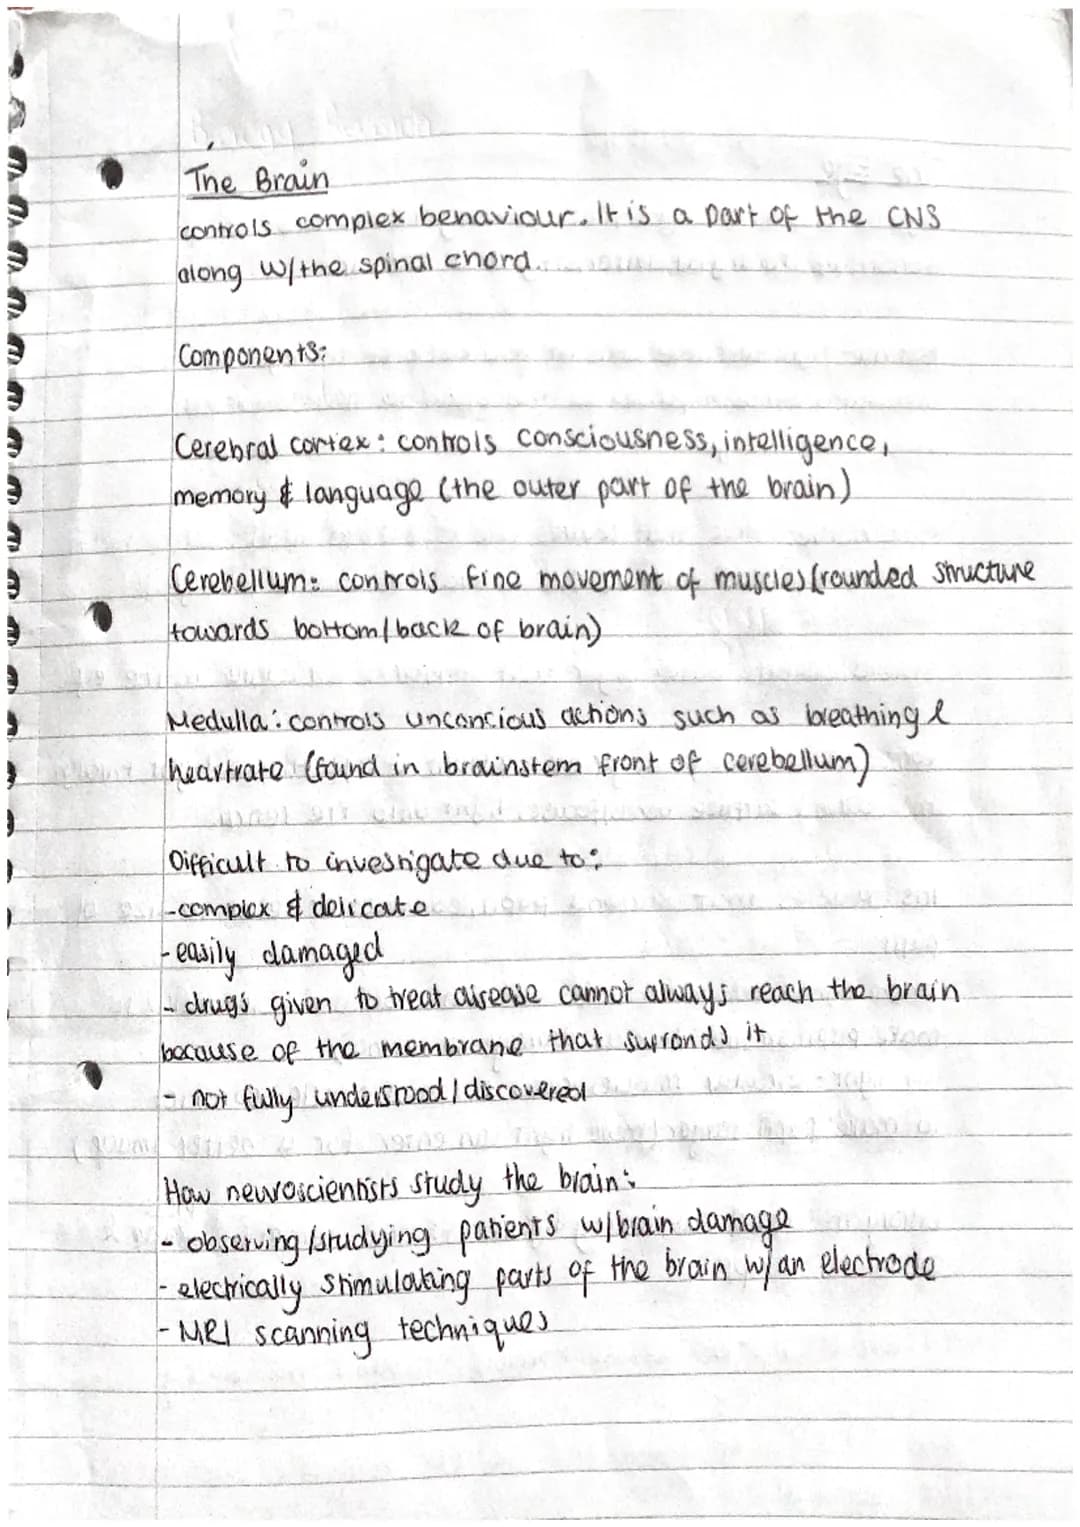 The Brain
controls complex behaviour. It is a part of the CNS
along w/the spinal chord.
Components:
Cerebral cortex: controls consciousness, intelligence,
memory & language (the outer part of the brain)
Cerebellum: controls fine movement of muscles (rounded structure
towards bottom/back of brain)
Medulla: controls unconcious actions such as breathing &
heartrate (found in brainstem front of cerebellum)
Difficult to investigate due to:
-complex & delicate
-easily damaged
- drugs given to treat disease cannot always reach the brain
because of the membrane that surronds it
- not fully understood/discovered
How neuroscientists study the brain:
- observing/studying patients w/brain damage
- electrically stimulating parts of the brain w/an electrode
- MRI scanning techniques